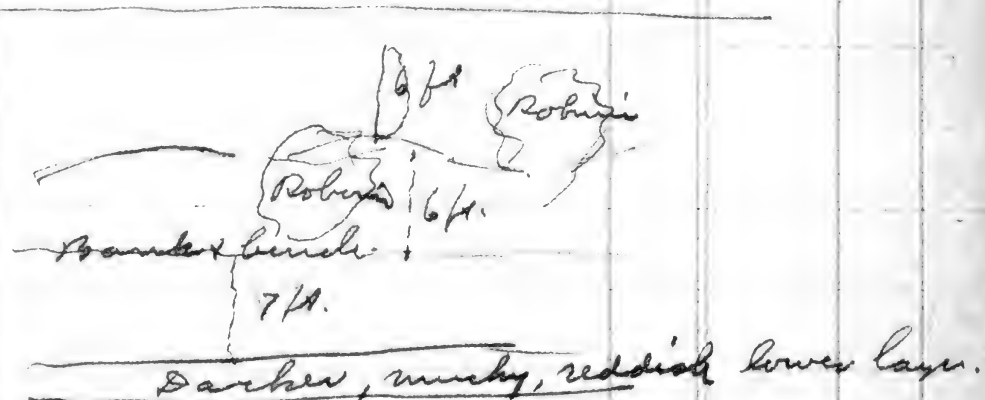 6 ft
Robinia
Robinia
6 ft.
Bank & bench
7 ft.
Darker, mucky, reddish lower layer.